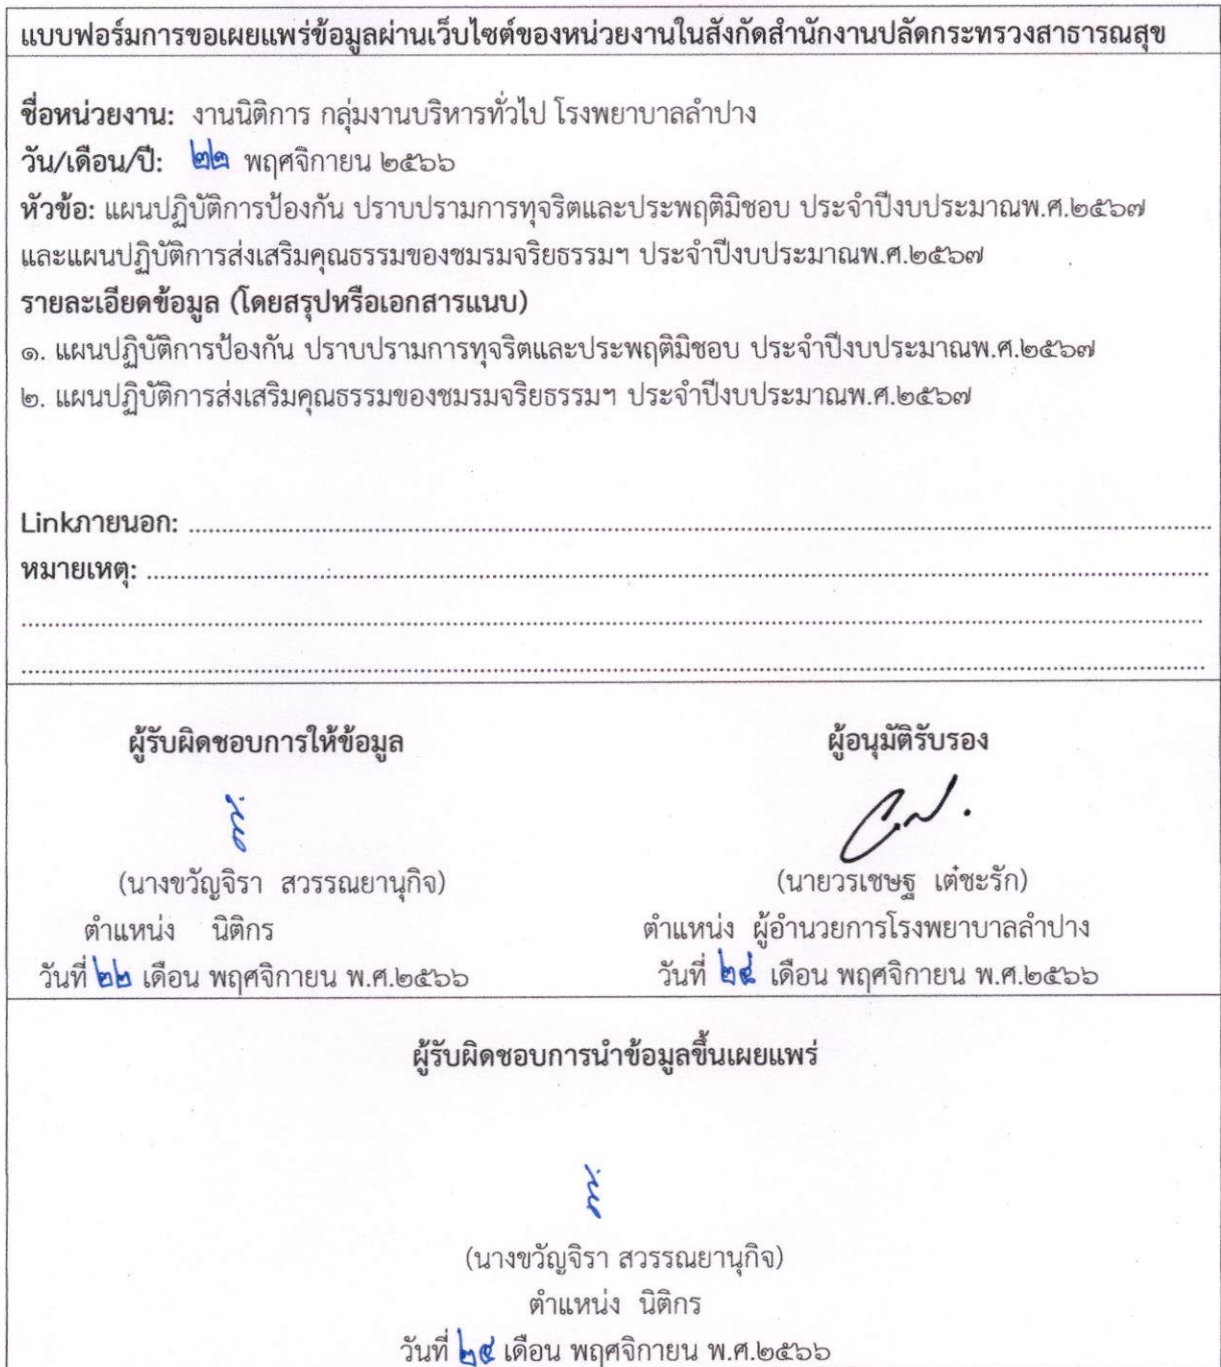 แบบฟอร์มการขอเผยแพร่ข้อมูลผ่านเว็บไซต์ของหน่วยงานในสังกัดสำนักงานปลัดกระทรวงสาธารณสุข
ชื่อหน่วยงาน: งานนิติการ กลุ่มงานบริหารทั่วไป โรงพยาบาลลำปาง
วัน/เดือน/ปี: ๒๒ พฤศจิกายน ๒๕๖๖
หัวข้อ: แผนปฏิบัติการป้องกัน ปราบปรามการทุจริตและประพฤติมิชอบ ประจำปีงบประมาณพ.ศ.๒๕๖๗
และแผนปฏิบัติการส่งเสริมคุณธรรมของชมรมจริยธรรมฯ ประจำปีงบประมาณพ.ศ.๒๕๖๗
รายละเอียดข้อมูล (โดยสรุปหรือเอกสารแนบ)
๑. แผนปฏิบัติการป้องกัน ปราบปรามการทุจริตและประพฤติมิชอบ ประจำปีงบประมาณพ.ศ.๒๕๖๗
๒. แผนปฏิบัติการส่งเสริมคุณธรรมของชมรมจริยธรรมฯ ประจำปีงบประมาณพ.ศ.๒๕๖๗
Linkภายนอก:
หมายเหตุ:
ผู้รับผิดชอบการให้ข้อมูล ผู้อนุมัติรับรอง
(นางขวัญจิรา สวรรณยานุกิจ) (นายวรเชษฐ เต๋ชะรัก)
ตำแหน่ง นิติกร ตำแหน่ง ผู้อำนวยการโรงพยาบาลลำปาง
วันที่ ๒๒ เดือน พฤศจิกายน พ.ศ.๒๕๖๖ วันที่ ๒๔ เดือน พฤศจิกายน พ.ศ.๒๕๖๖
ผู้รับผิดชอบการนำข้อมูลขึ้นเผยแพร่
(นางขวัญจิรา สวรรณยานุกิจ)
ตำแหน่ง นิติกร
วันที่ ๒๔ เดือน พฤศจิกายน พ.ศ.๒๕๖๖